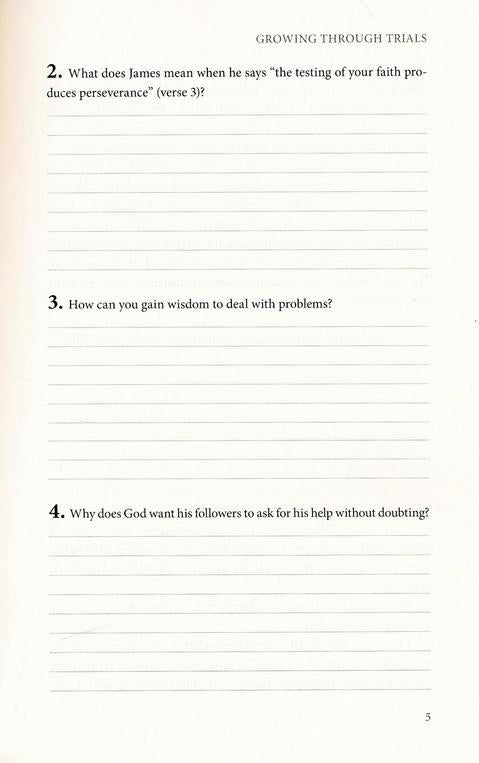 GROWING THROUGH TRIALS
2. What does James mean when he says “the testing of your faith pro-
duces perseverance” (verse 3)?
3. How can you gain wisdom to deal with problems?
4. Why does God want his followers to ask for his help without doubting?
5